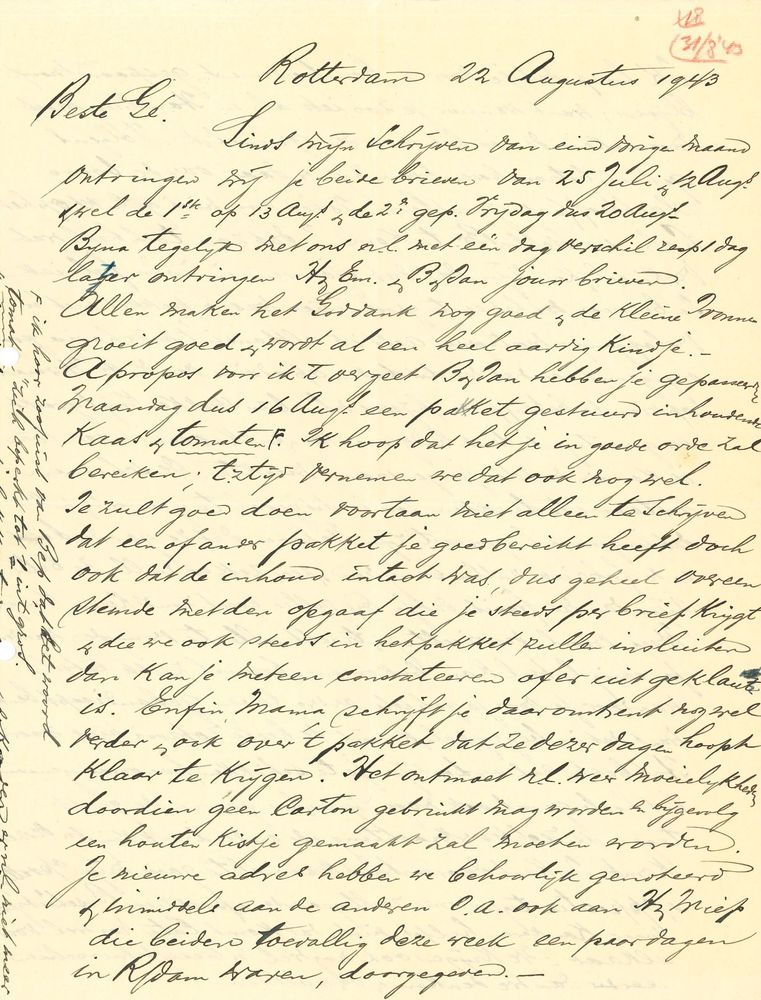 18
(31/8 '43
Rotterdam 22 Augustus 1943
Beste Gé.
Sinds mijn schrijven van eind vorige maand
ontvingen wij je beide brieven van 25 Juli & 12 Aug.
& wel de 1ste op 13 Aug. & de 2e gep. Vrijdag dus 20 Aug.
Byna tegelyk met ons n.l. met één dag verschil resp 1 dag
later ontvingen Em. & Jan jouw brieven.
Allen maken het Goddank nog goed & de kleine Ivonne
groeit goed & wordt al een heel aardig Kindje. -
A propos voor ik 't vergeet Jan hebben je gepasseerde
Maandag dus 16 Aug. een pakket gestuurd inhoudende
Kaas & tomaten F. Ik hoop dat het je in goede orde zal
bereiken; t.z.tijd vernemen we dat ook nog wel.
Je zult goed doen voortaan niet alleen te schrijven
dat een of ander pakket je goed bereikt heeft doch
ook dat de inhoud intact was, dus geheel overeen
stemde met den opgaaf die je steeds per brief krygt
& die we ook steeds in het pakket zullen insluiten
dan kan je meteen constateeren of er uit geklaut
is. Enfin, Mama schrijft je daaromtrent nog wel
verder & ook over 't pakket dat ze dezer dagen hoopt
Klaar te krygen. Het ontmoet n.l. weer moeielykheden
doordien geen Carton gebruikt mag worden en bijgevolg
een houten Kistje gemaakt zal moeten worden.
Je nieuwe adres hebben we behoorlijk genoteerd
& inmiddels aan de anderen o.a. ook aan Miep
die beiden toevallig deze week een paar dagen
in R/dam waren, doorgegeven. -
F ik hoor zoojuist van Bep dat het woord
tomaten zich beperkt tot
niet meer